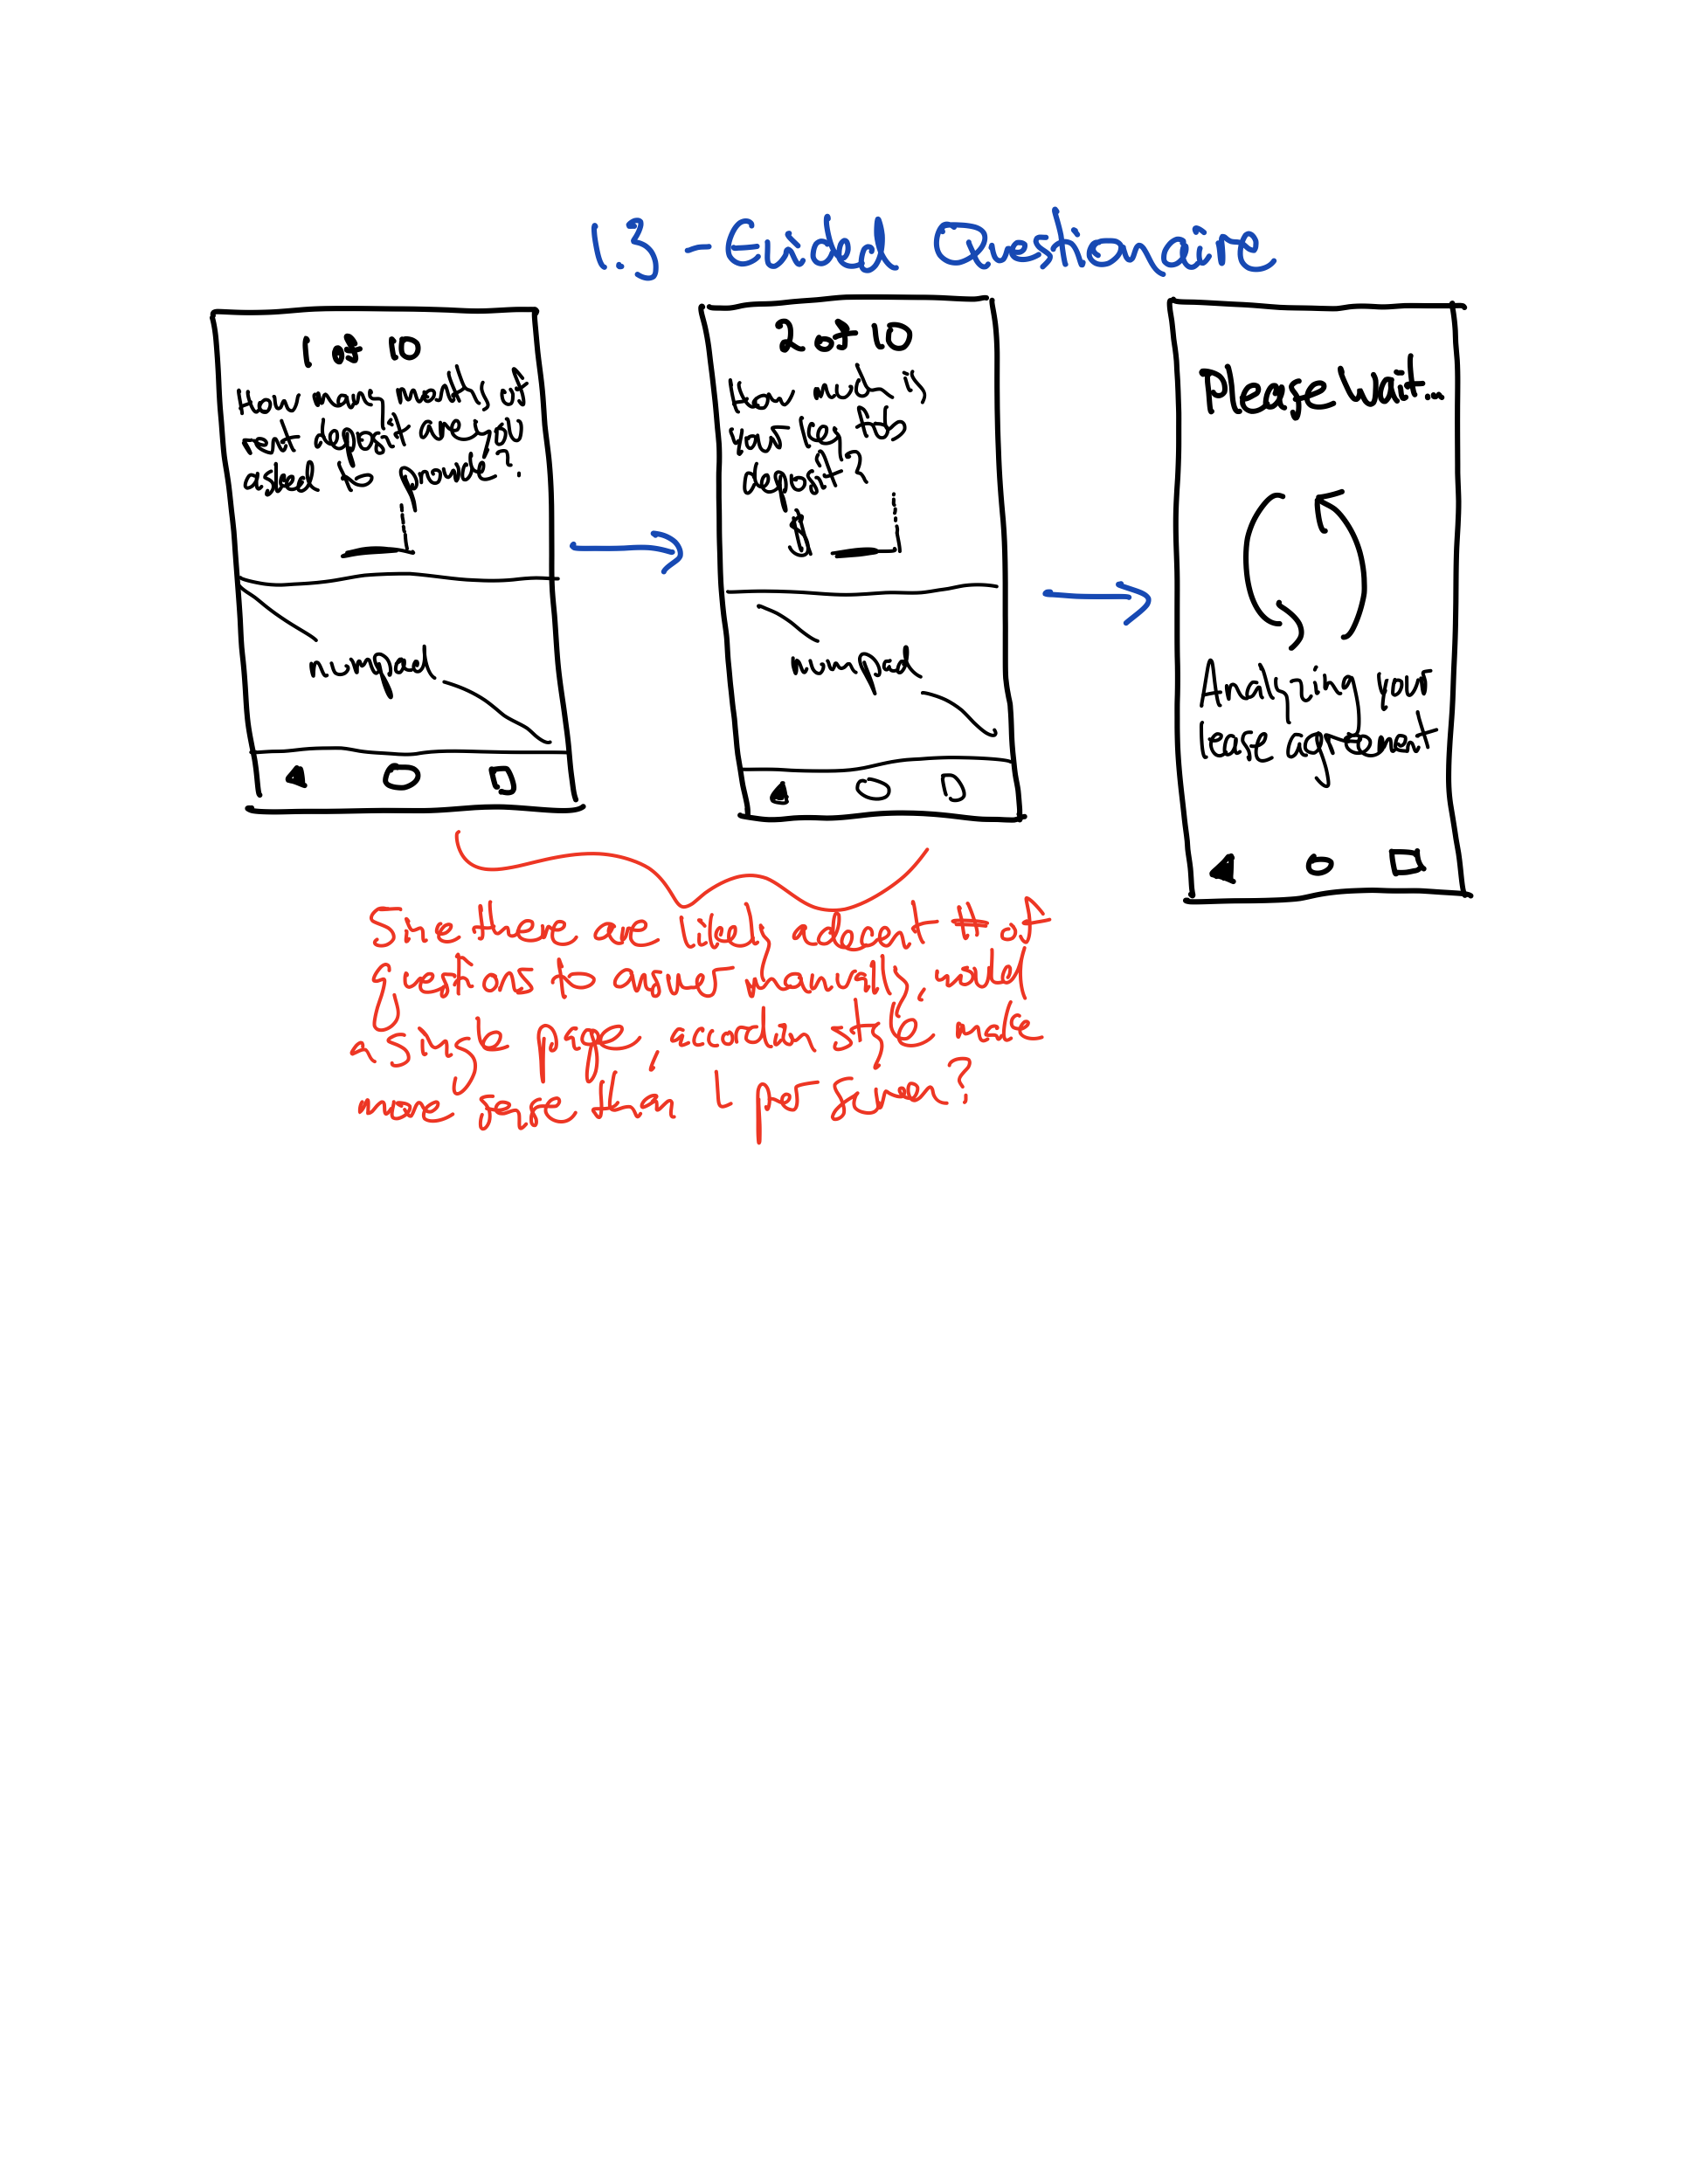 1.3 - Guided Questionaire
1 of 10
How many months of
rent deposit are you
asked to provide?
numpad
2 of 10
How much is
your key fob
deposit?
$
numpad
Please wait...
Analyzing your
lease agreement
Since there are likely a decent # of
questions to answer manually, would
a single page, accordian style make
more sense than 1 per screen?